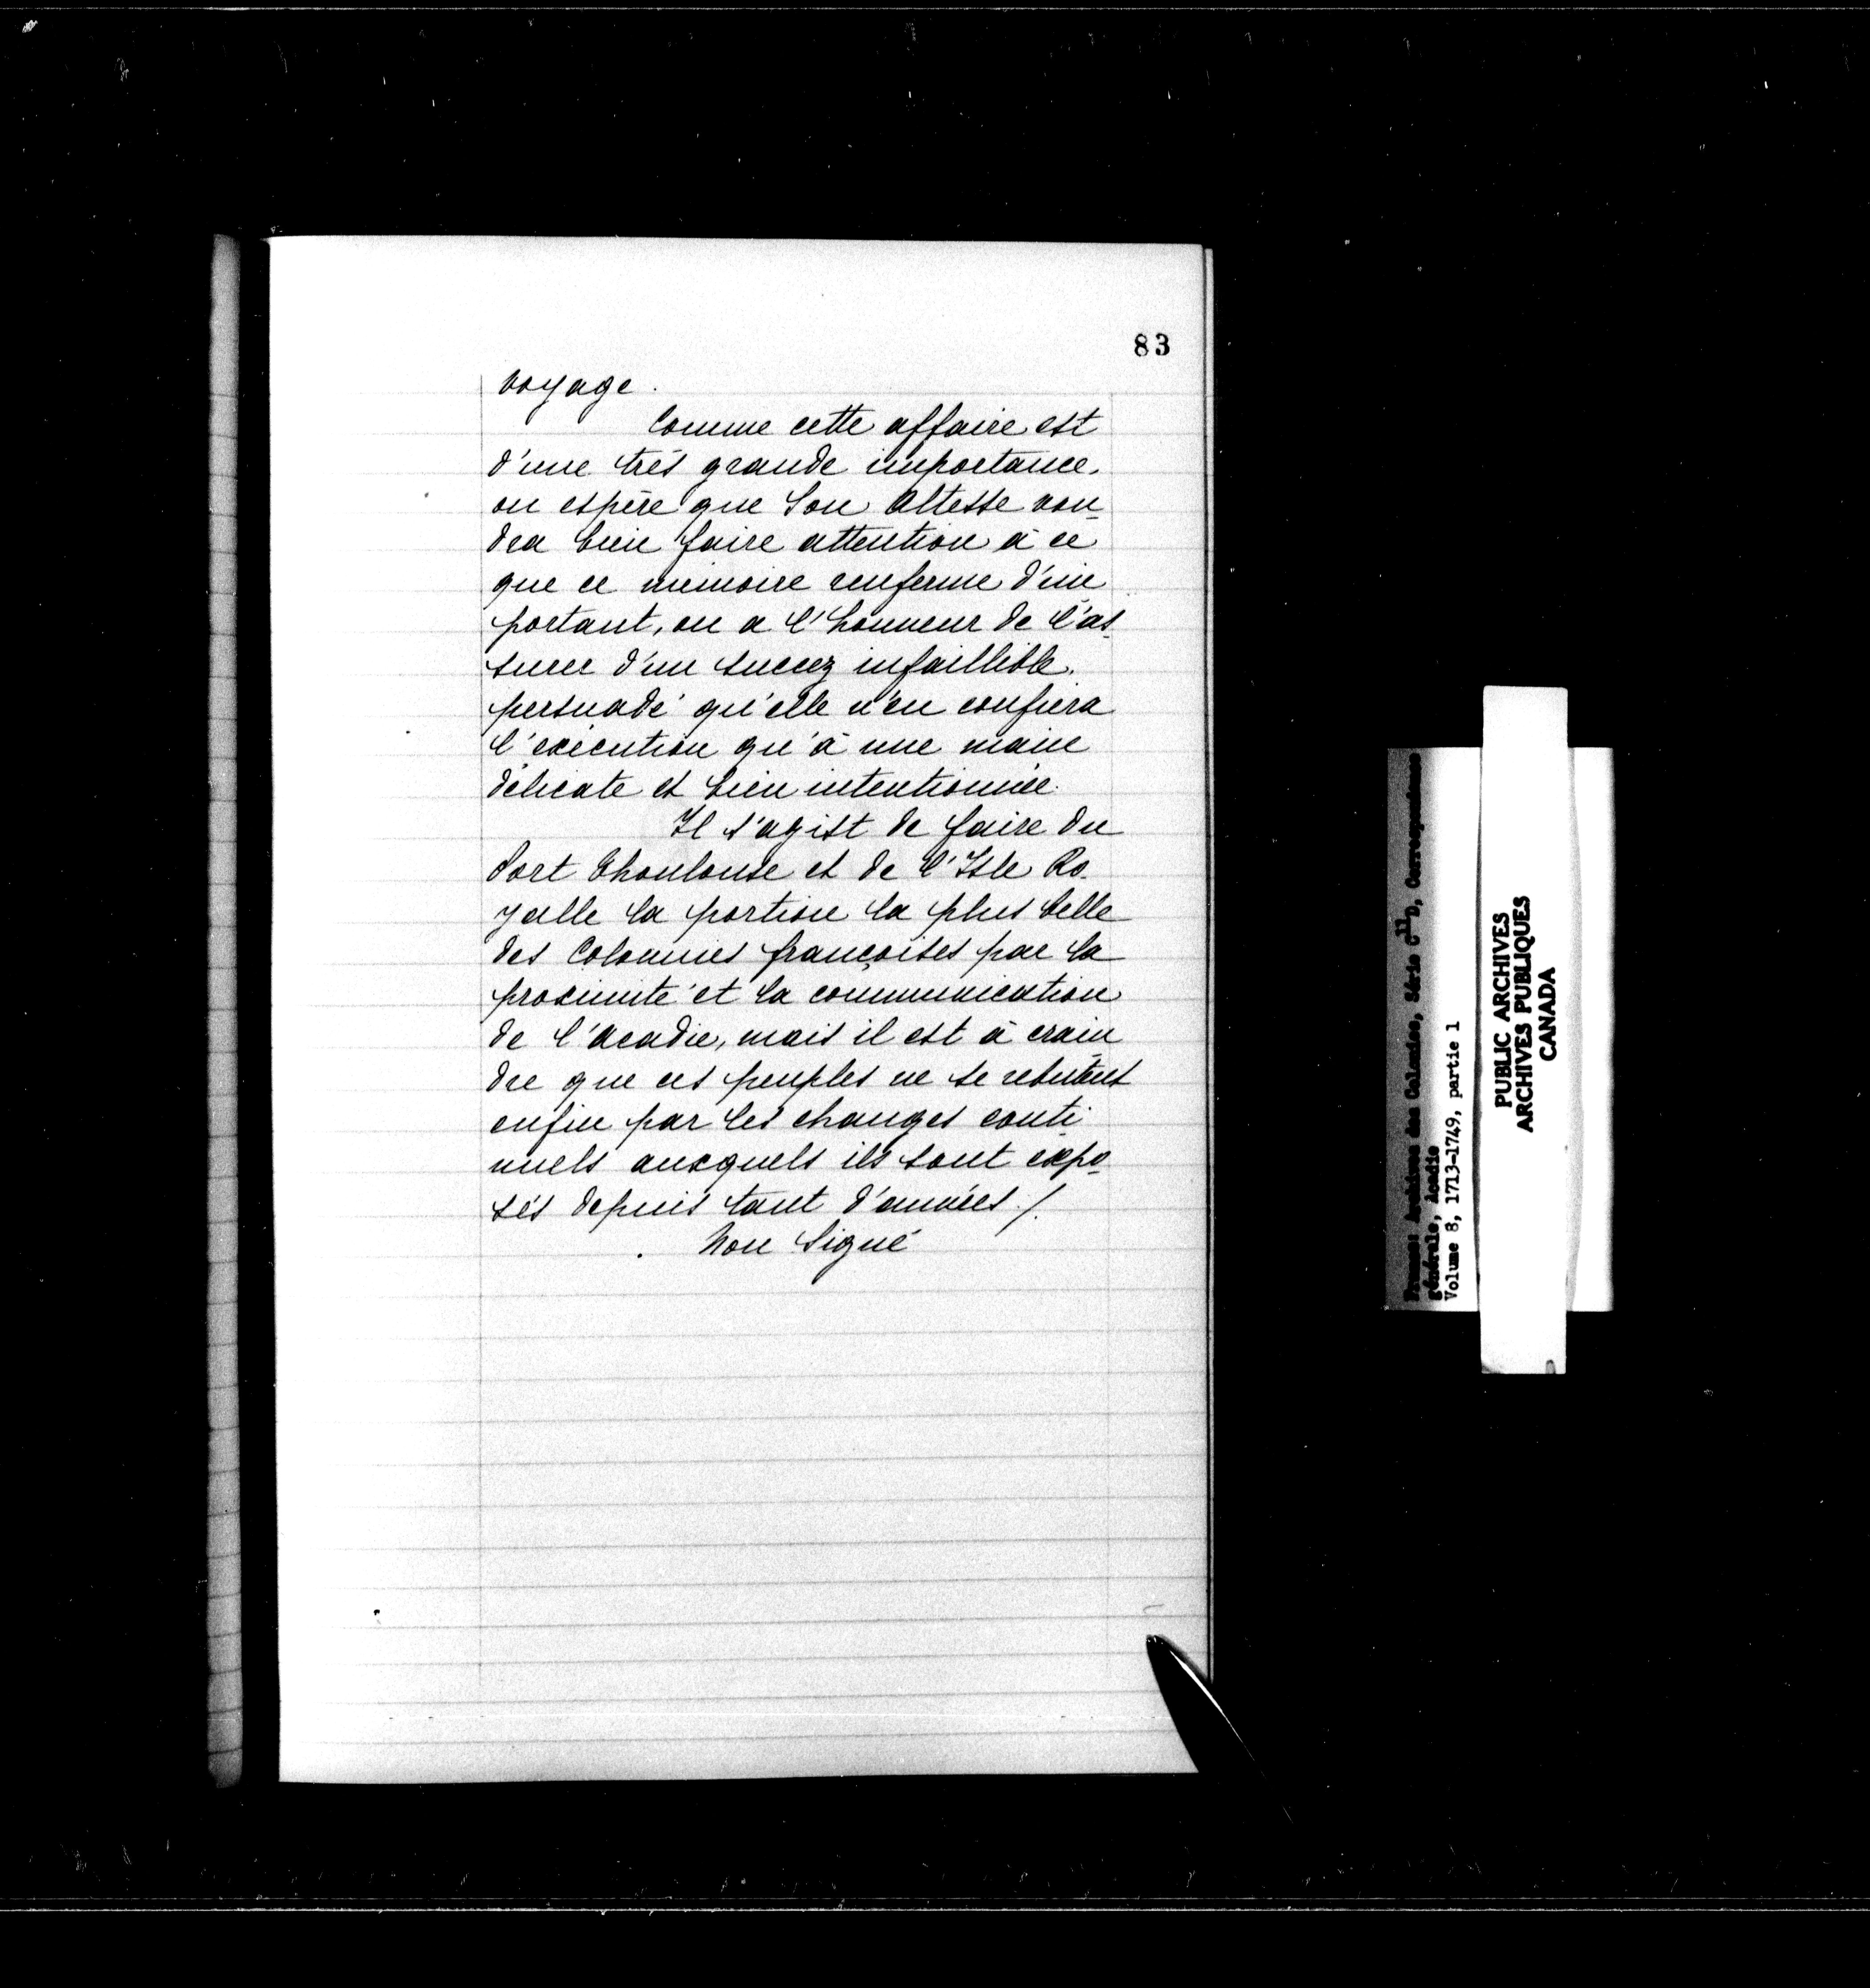 83
voyage.
Comme cette affaire est
d'une très grande importance.
on espère que Son Altesse vou-
dra bien faire attention à ce
que ce mémoire renferme d'im
portant, on a l'honneur de l'as-
surer d'un succez infaillible.
persuadé qu'elle n'en confiera
l'exécution qu'à une main
délicate et bien intentionnée.
Il s'agist de faire du
Port Thoulouse et de l'Isle Ro-
yalle la portion la plus belle
des Colonies françoises par la
proximité et la communication
de l'Acadie, mais il est à crain
dre que ces peuples ne se rebutent
enfin par les changes conti-
nuels auxquels ils sont expo-
sés depuis tant d'années ./.
Non Signé
France: Archives des Colonies, Série C11D, Correspondance
générale, Acadie
Volume 8, 1713-1749, partie 1
PUBLIC ARCHIVES
ARCHIVES PUBLIQUES
CANADA